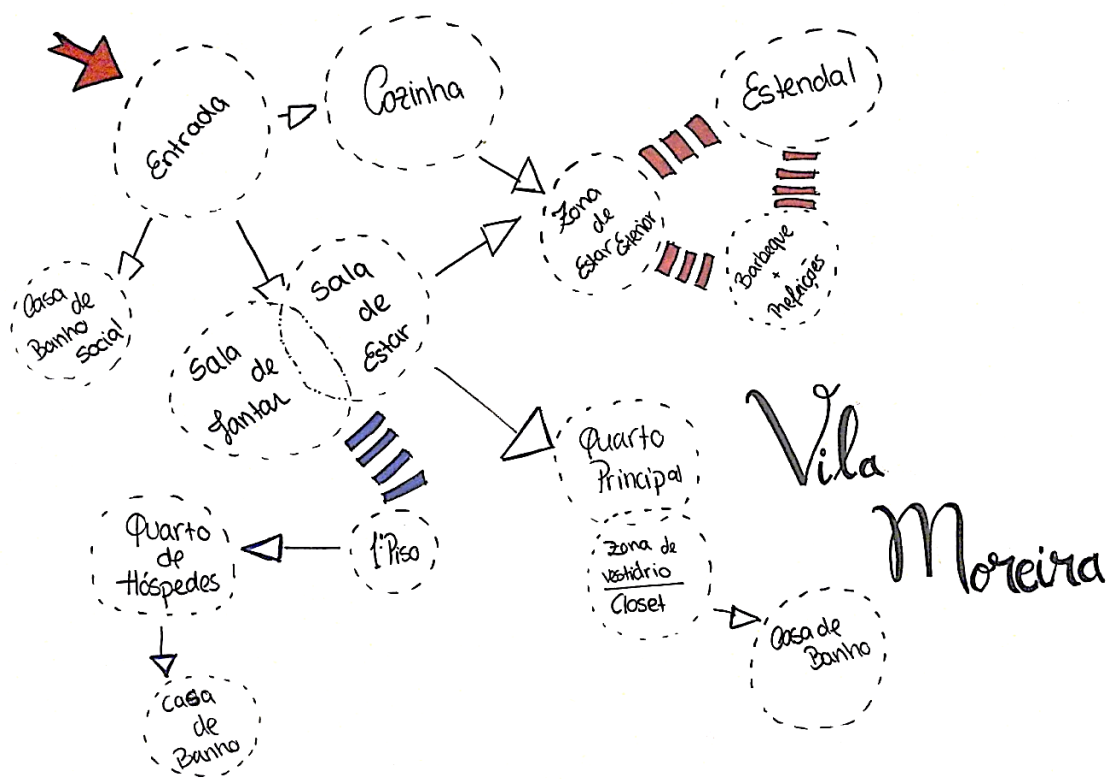 Entrada
Cozinha
Estendal
Zona
de
Estar Exterior
Barbeque
+
Prefeições
Casa
de
Banho
Social
Sala
de
Estar
Sala
de
Jantar
Quarto
Principal
Zona de
vestiário
Closet
Casa de
Banho
1º Piso
Quarto
de
Hóspedes
Casa
de
Banho
Vila
Moreira